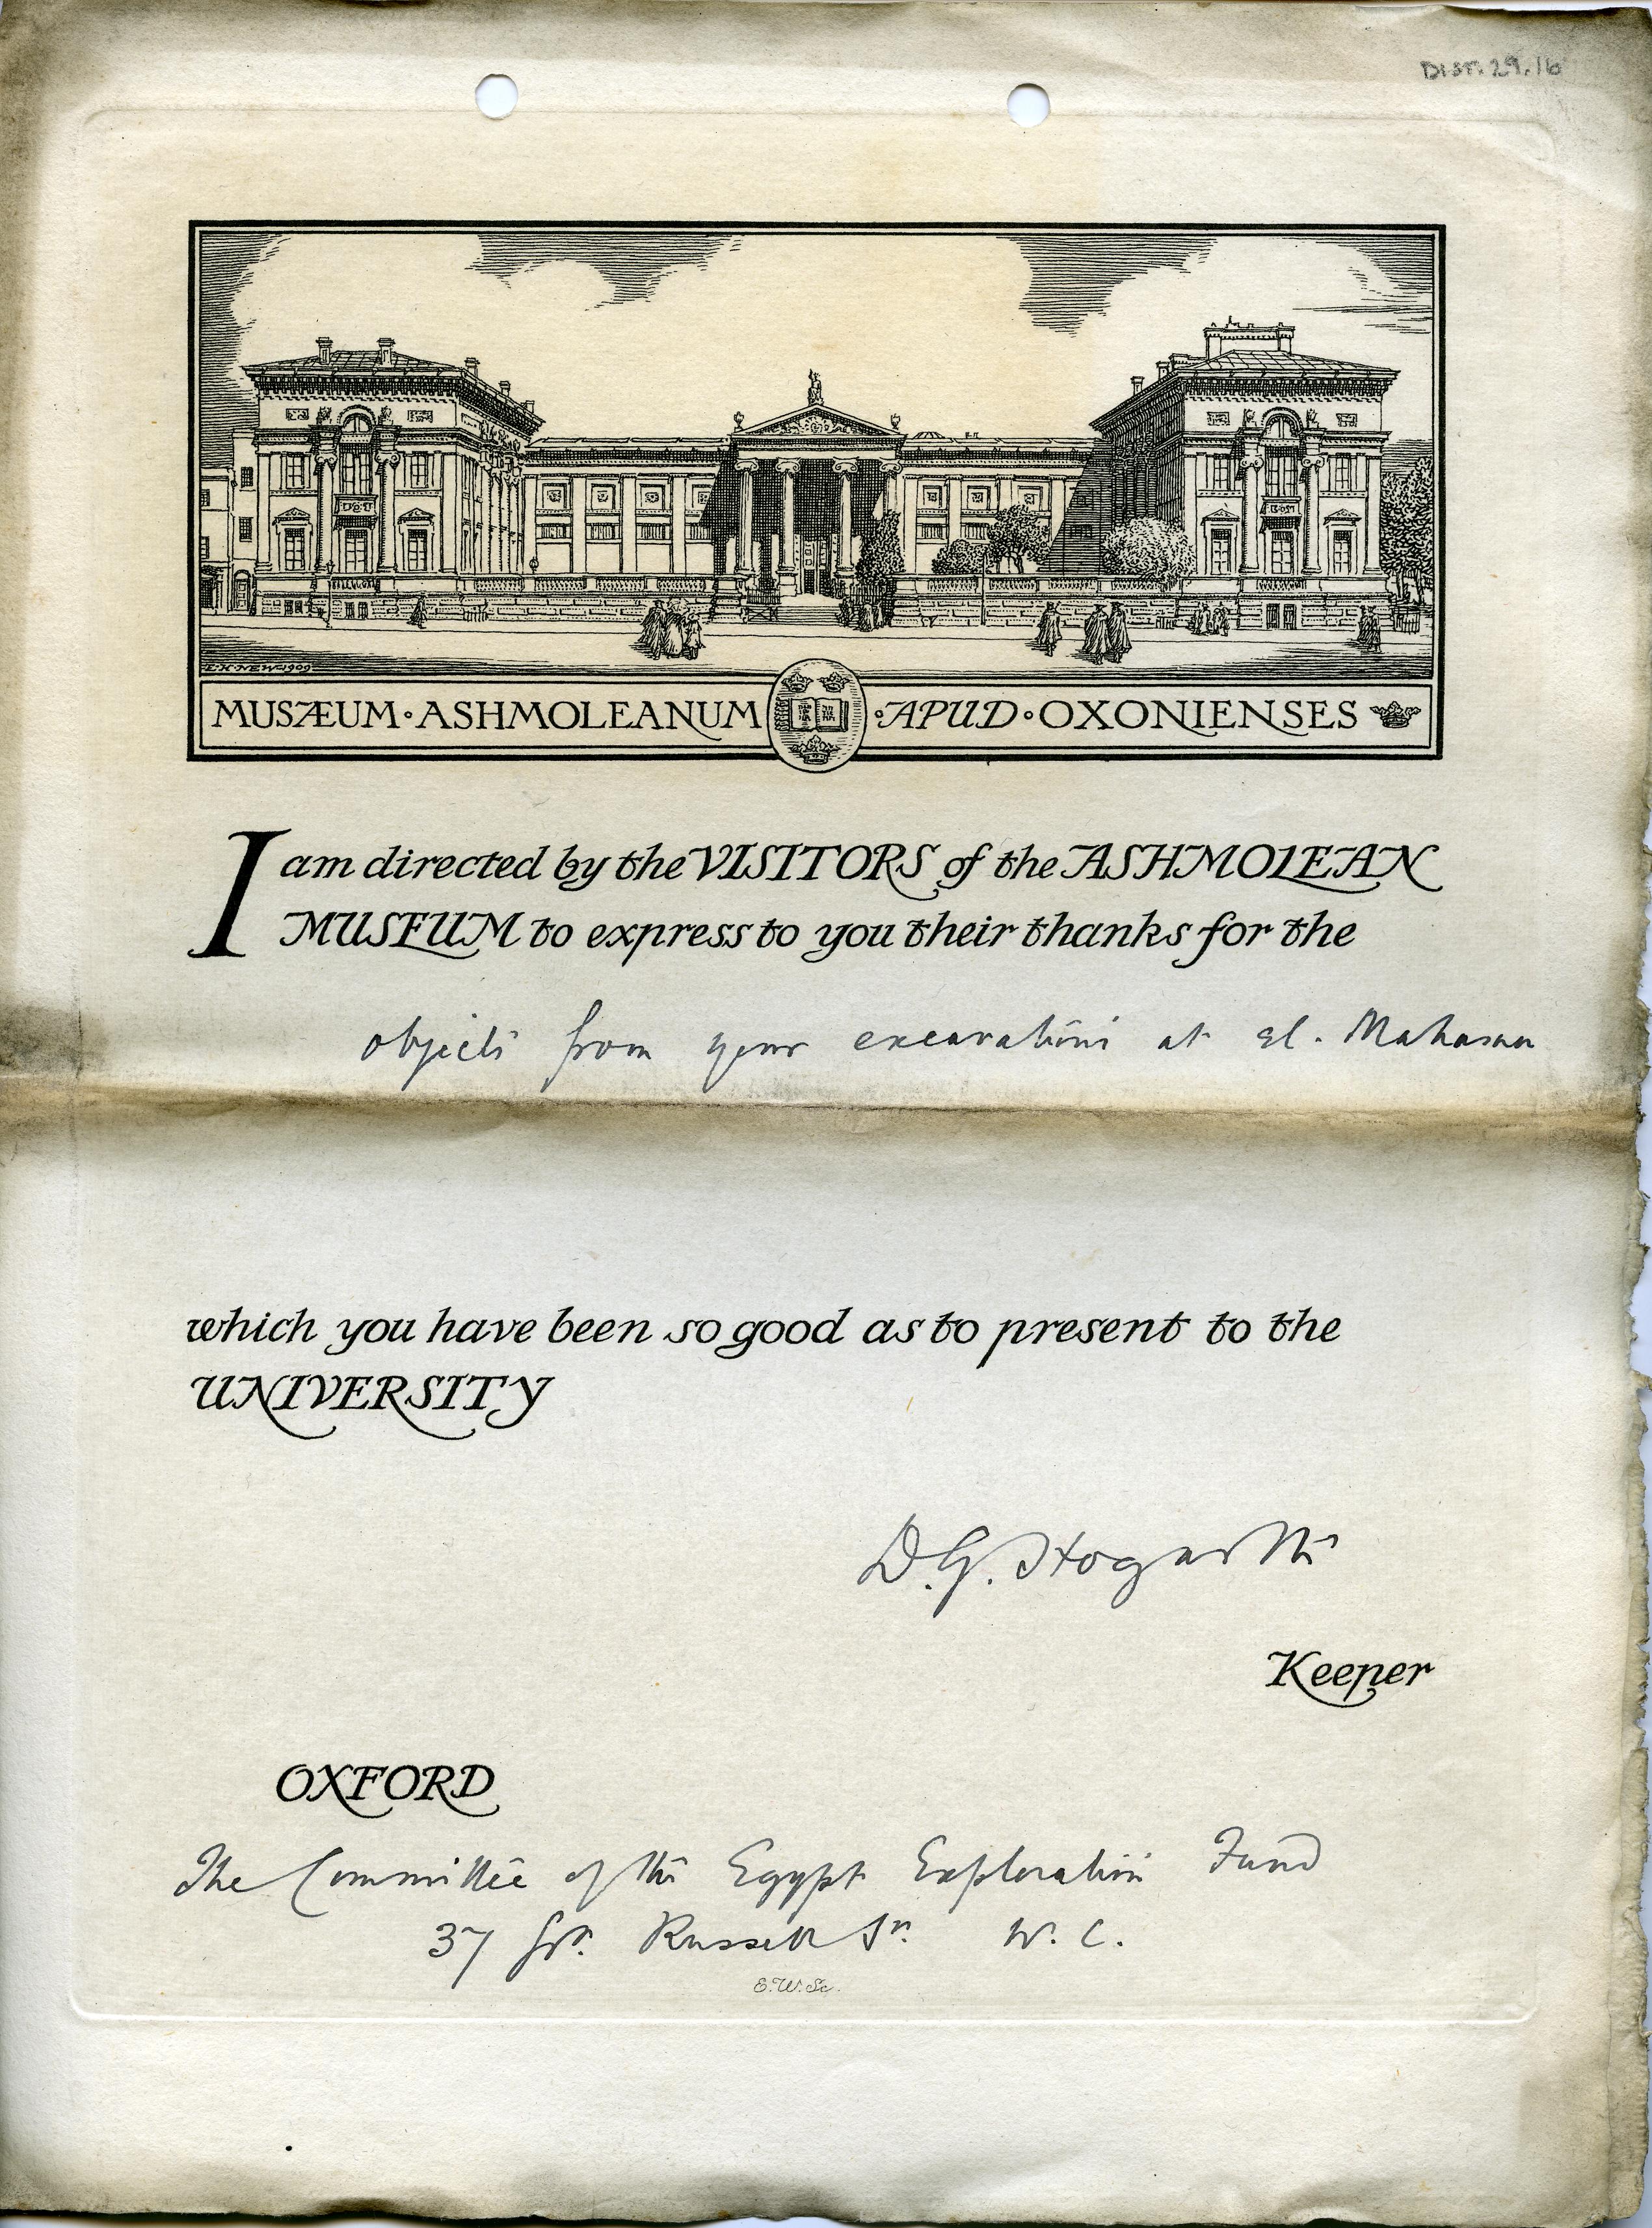 DIST.29.16
E·H·NEW·1909
MUSÆUM·ASHMOLEANUM ·APUD·OXONIENSES
I am directed by the VISITORS of the ASHMOLEAN
MUSEUM to express to you their thanks for the
objects from your excavations at el. Mahasna
which you have been so good as to present to the
UNIVERSITY
D.G. Hogarth
Keeper
OXFORD
The Committee of the Egypt Exploration Fund
37 Gt. Russell St. W. C.
E.W. Sc.